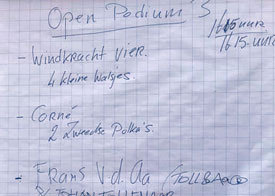 Open Podium's
16 15-uur
- WINDKRACHT VIER.
4 kleine walsjes
- CORNÉ
2 Zweedse Polka's.
- FRANS V.d. Aa